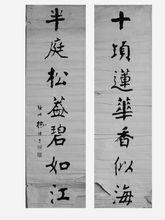 十項蓮華香似海
半庭松蓋碧如江